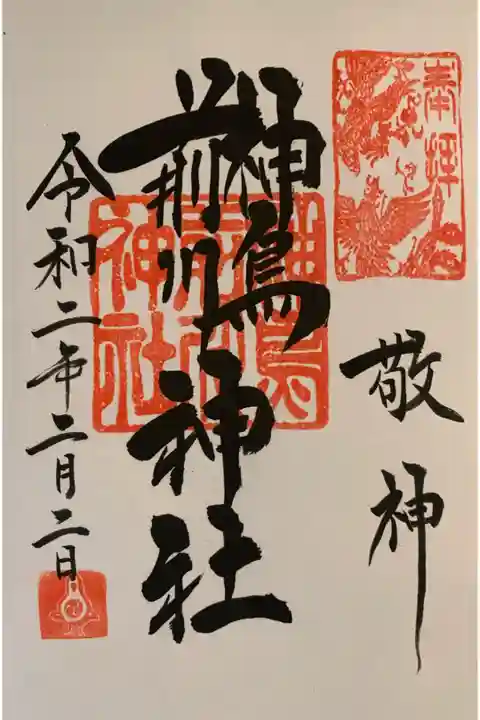 奉拝
敬神
神鳥前川神社
令和二年二月二日